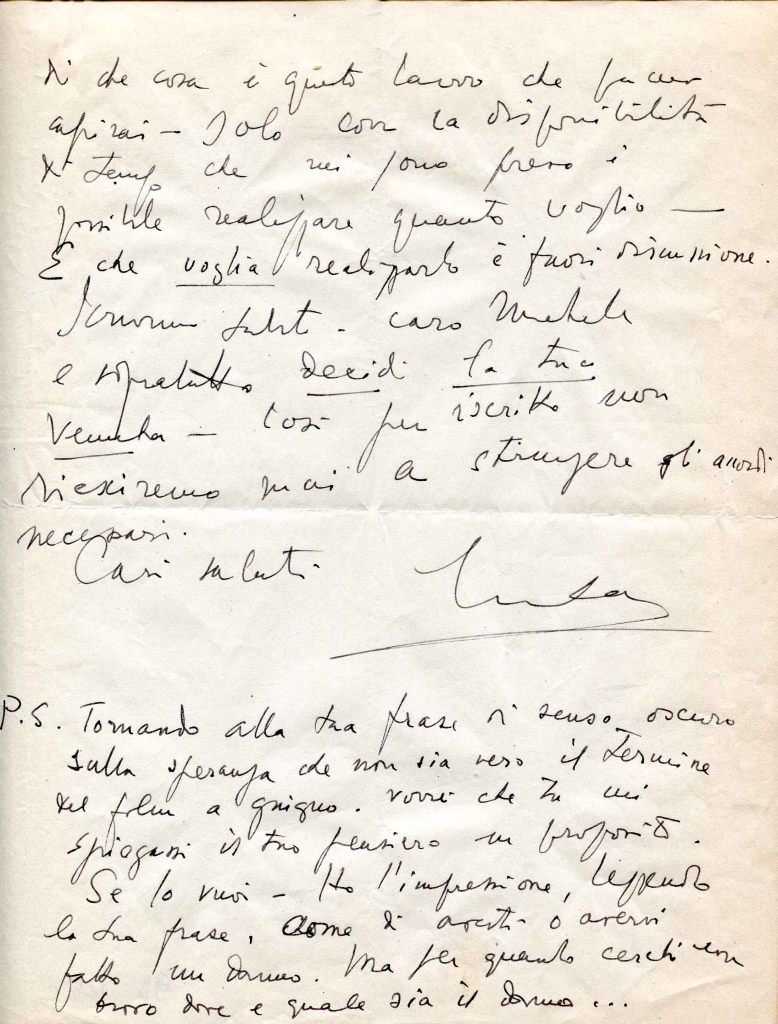 di che cosa è questo lavoro che facci
capirai — Solo con la disponibilità
di tempo che mi sono preso è
possibile realizzare quanto voglio —
E che voglia realizzarlo è fuori discussione.
Scrivimi subito. caro Michele
e sopratutto decidi la tua
Venuta — Così per iscritto non
riesciremo mai a stringere gli accordi
necessari.
Cari saluti
P.S. Tornando alla tua frase di senso oscuro
sulla speranza che non sia vero il termine
del film a giugno. vorrei che tu mi
spiegassi il tuo pensiero in proposito.
Se lo vuoi — Ho l'impressione, leggendo
la tua frase, come di averti o avervi
fatto un danno. Ma per quanto cerchi non
trovo dove e quale sia il danno...